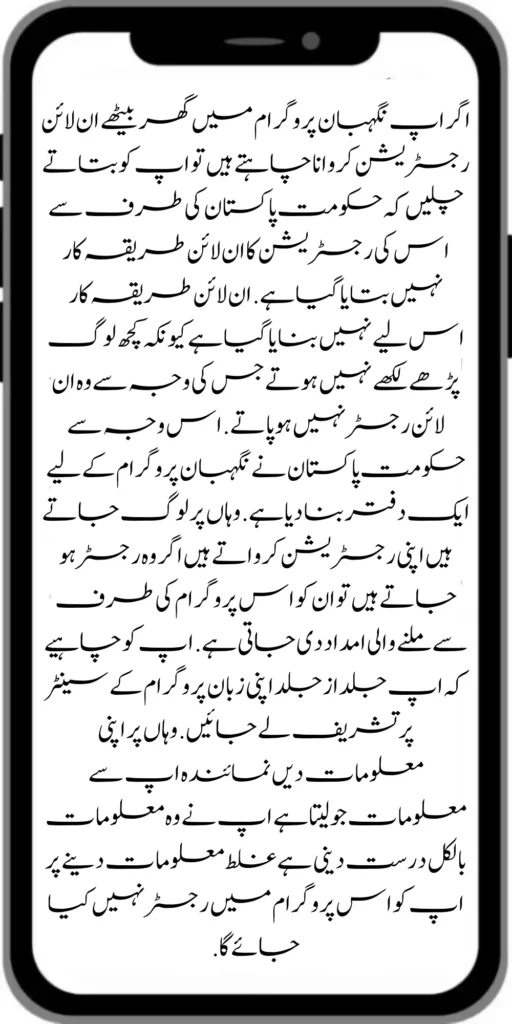 اگر اپ نگہبان پروگرام میں گھر بیٹھے ان لائن
رجسٹریشن کروانا چاہتے ہیں تو اپ کو بتاتے
چلیں کہ حکومت پاکستان کی طرف سے
اس کی رجسٹریشن کا ان لائن طریقہ کار
نہیں بتایا گیا ہے. ان لائن طریقہ کار
اس لیے نہیں بنایا گیا ہے کیونکہ کچھ لوگ
پڑھے لکھے نہیں ہوتے جس کی وجہ سے وہ ان
لائن رجسٹر نہیں ہو پاتے. اس وجہ سے
حکومت پاکستان نے نگہبان پروگرام کے لیے
ایک دفتر بنا دیا ہے. وہاں پر لوگ جاتے
ہیں اپنی رجسٹریشن کرواتے ہیں اگر وہ رجسٹر ہو
جاتے ہیں تو ان کو اس پروگرام کی طرف
سے ملنے والی امداد دی جاتی ہے. اپ کو چاہیے
کہ اپ جلد از جلد اپنی زبان پروگرام کے سینٹر
پر تشریف لے جائیں. وہاں پر اپنی
معلومات دیں نمائندہ اپ سے
معلومات جو لیتا ہے اپ نے وہ معلومات
بالکل درست دینی ہے غلط معلومات دینے پر
اپ کو اس پروگرام میں رجسٹر نہیں کیا
جائے گا.